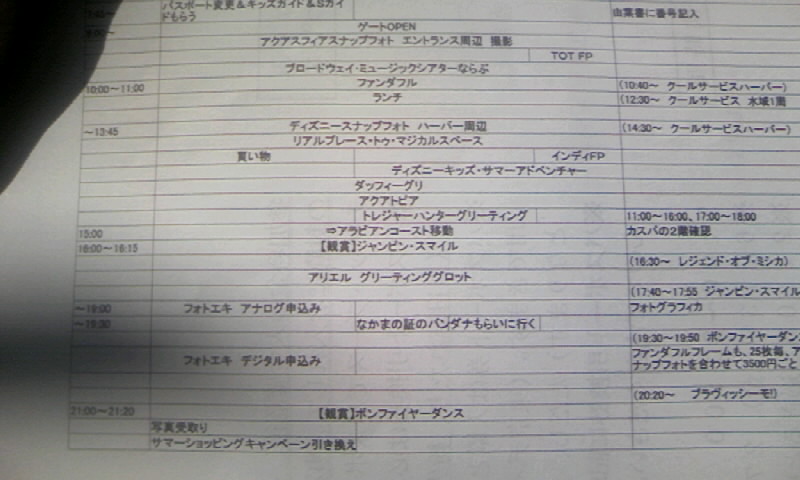 パスポート変更＆キッズガイド＆Sガイ
ドもらう
由葉書に番号記入
ゲートOPEN
アクアスフィアスナップフォト エントランス周辺 撮影
TOT FP
ブロードウェイ・ミュージックシアターならぶ
10:00～11:00 ファンダフル (10:40～ クールサービスハーバー)
ランチ (12:30～ クールサービス 水域1階
～13:45 ディズニースナップフォト ハーバー周辺 (14:30～ クールサービスハーバー)
リアルプレース・トゥ・マジカルスペース
買い物 インディFP
ディズニーキッズ・サマーアドベンチャー
ダッフィーグリ
アクアトピア
トレジャーハンターグリーティング 11:00～16:00、17:00～18:00
15:00 ⇒アラビアンコースト移動 カスバの2階確認
16:00～16:15 【観賞】ジャンピン・スマイル
(16:30～ レジェンド・オブ・ミシカ)
アリエル グリーティンググロット
(17:40～17:55 ジャンピン・スマイル
フォトエキ アナログ申込み フォトグラフィカ
なかまの証のバンダナもらいに行く
(19:30～19:50 ボンファイヤーダン
フォトエキ デジタル申込み ファンダフルフレームも、25枚毎、ア
ナップフォトを合わせて3500円ごと
(20:20～ ブラヴィッシーモ!)
21:00～21:20 【観賞】ボンファイヤーダンス
写真受取り
サマーショッピングキャンペーン引き換え